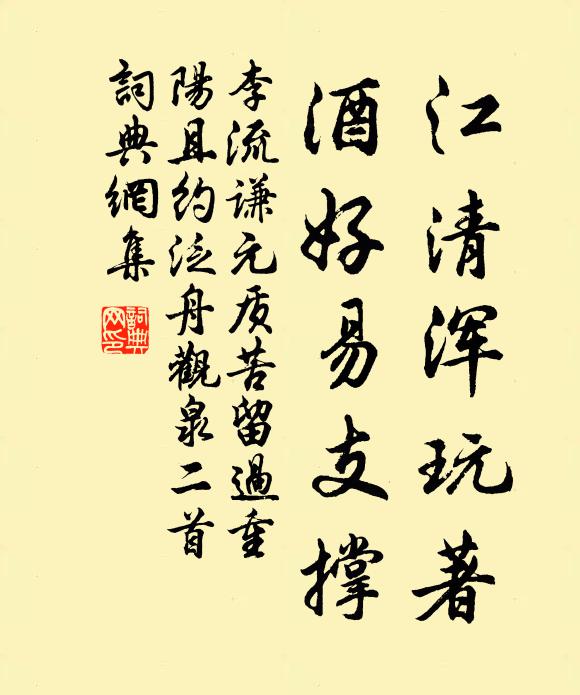 江清浑玩著
酒好易支撑
李流谦元质苦留過重
陽且约泛舟觀泉二首
詞典網集
詞典网印